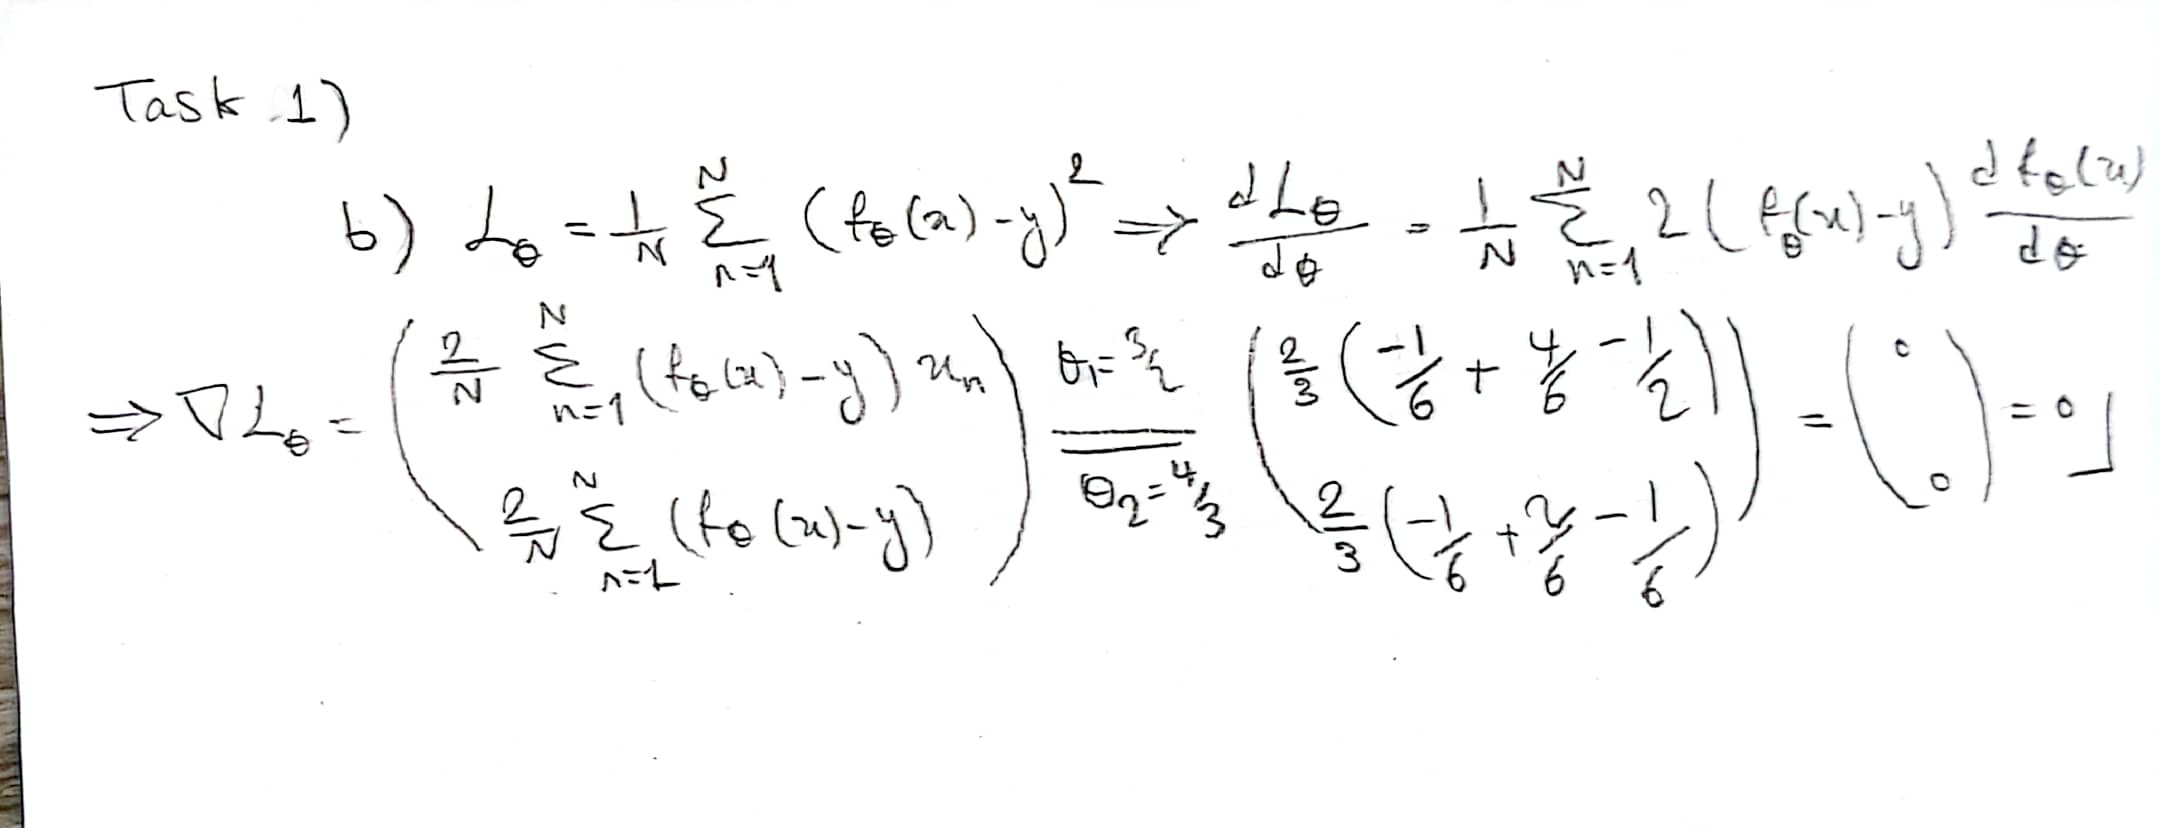 Task 1)
b) L_θ = 1/N Σ_{n=1}^{N} (f_θ(x) - y)² ⇒ dL_θ/dθ = 1/N Σ_{n=1}^{N} 2(f_θ(x) - y) df_θ(x)/dθ
⇒ ∇L_θ = ( 2/N Σ_{n=1}^{N} (f_θ(x) - y) x_n ; 2/N Σ_{n=1}^{N} (f_θ(x) - y) ) =^{θ₁=3/2}_{θ₂=4/3} ( 2/3 (-1/6 + 4/6 - 1/2) ; 2/3 (-1/6 + 2/6 - 1/6) ) = ( 0 ; 0 ) = 0 ⌋